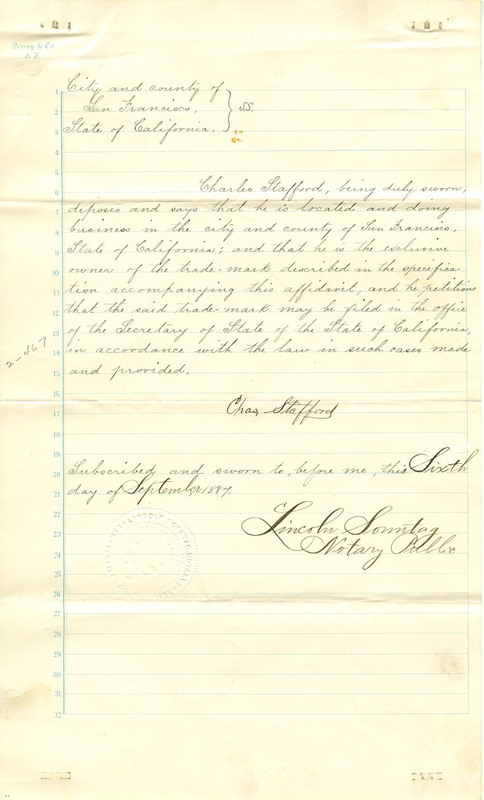 Dewey & Co.
S. F.
1 City and county of
2 San Francisco, } SS.
3 State of California.
4
5
6 Charles Stafford, being duly sworn,
7 deposes and says that he is located and doing
8 business in the city and county of San Francisco,
9 State of California; and that he is the exclusive
10 owner of the trade-mark described in the specifica-
11 tion accompanying this affidavit, and he petitions
12 that the said trade-mark may be filed in the office
13 of the Secretary of State of the State of California,
14 in accordance with the law in such cases made
15 and provided.
2-467
16
17 Chas Stafford
18
19
20 Subscribed and sworn to, before me, this Sixth
21 day of September 1887.
22
23 Lincoln Sonntag
24 Notary Public
25
26
27
28
29
30
31
32